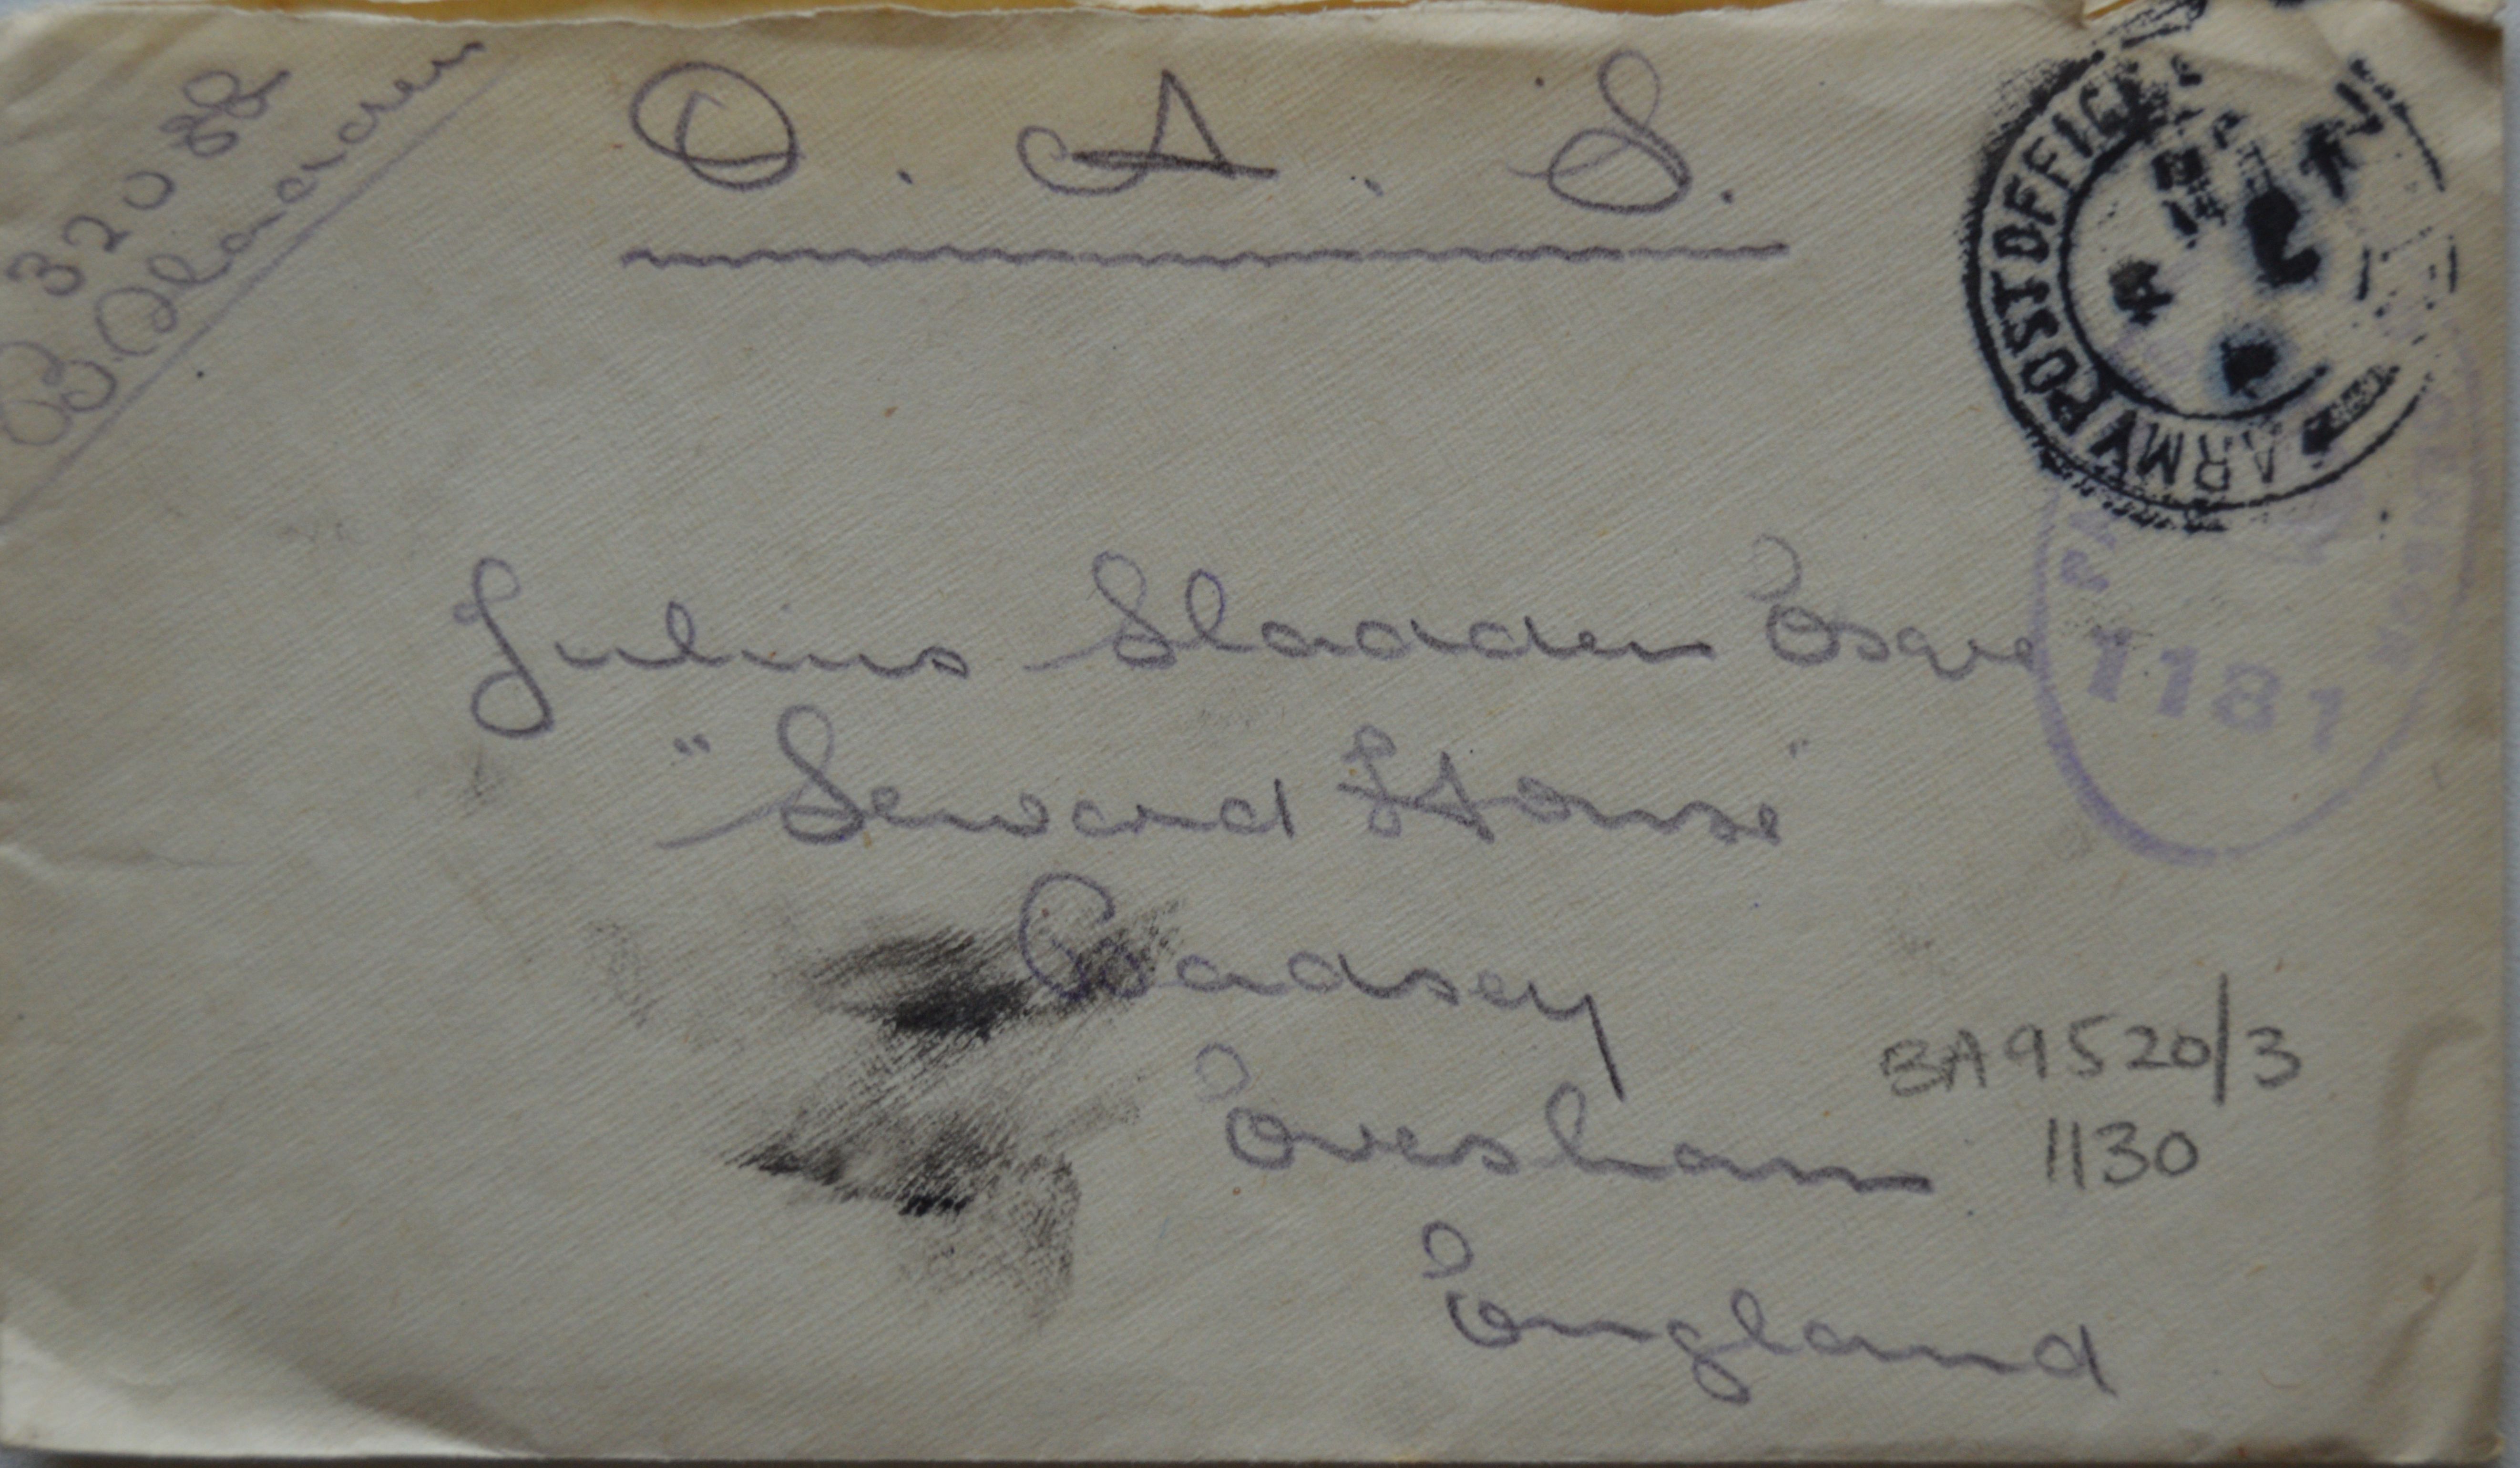 32088
B. Sladden
O. A. S.
ARMY POST OFFICE
Julius Sladden Esqre
"Seward House"
Badsey
Evesham
England
1181
BA9520/3
1130